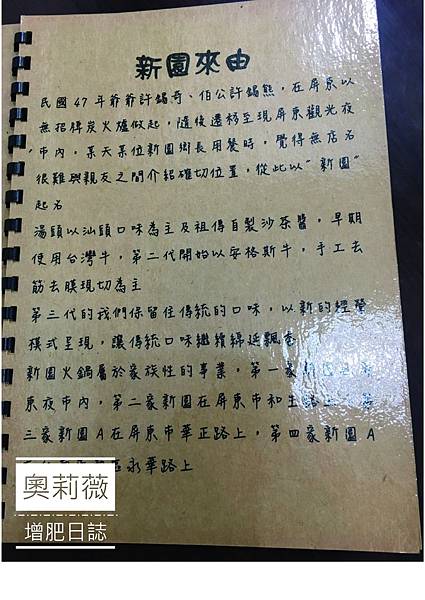 新園來由
民國47年爺爺許錫奇、伯公許錫熊，在屏東以
無招牌炭火爐做起，隨後遷移至現屏東觀光夜
市內，某天某位新園鄉長用餐時，覺得無店名
很難與親友之間介紹確切位置，從此以"新園"
起名
湯頭以汕頭口味為主及祖傳自製沙茶醬，早期
使用台灣牛，第二代開始以安格斯牛，手工去
筋去膜現切為主
第三代的我們保留住傳統的口味，以新的經營
模式呈現，讓傳統口味繼續綿延飄香
新園火鍋屬於家族性的事業，第一家新
東夜市內，第二家新園在屏東市和生路上，第
三家新園A在屏東市華正路上，第四家新園A
區永華路上
奧莉薇
增肥日誌